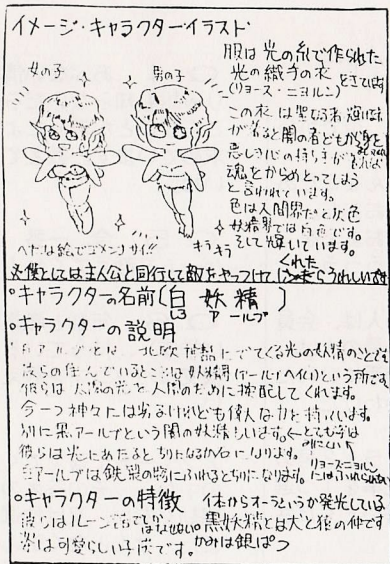 イメージ・キャラクターイラスト
女の子
男の子
服は光の糸で作られた
光の織手の衣
(リョース・ニョルン)
ときています
この衣は聖なる
悪しき心の持ち主が
魂をからめとってしまう
と言われています。
色は人間界だと灰色
妖精界では白色です。
そして輝いています。
キラキラ
ヘたな絵でゴメンナサイ!!
僕としては主人公と同行して敵をやっつけてくれたらうれしいです
○キャラクターの名前(白妖精)
アールブ
○キャラクターの説明
白アールブとは、北欧神話にでてくる光の妖精のことです
彼らの住んでいるところは妖精界(アールブヘイム)という所です。
彼らは太陽の光を人間のために控配してくれます。
今一つ神々には劣るけれども偉大な力を持っています。
別に黒アールブという闇の妖精もいます。
彼らは光にあたるとちりになるか石になります。
白アールブは鉄製の物にふれるとちりになります。
リョースニョルン
にはふれられない
○キャラクターの特徴
体からオーラというか発光している
彼らはルーン
はなせない
黒妖精とは犬と猿の仲です
姿は可愛らしい子供です。
かみは銀ぱつ